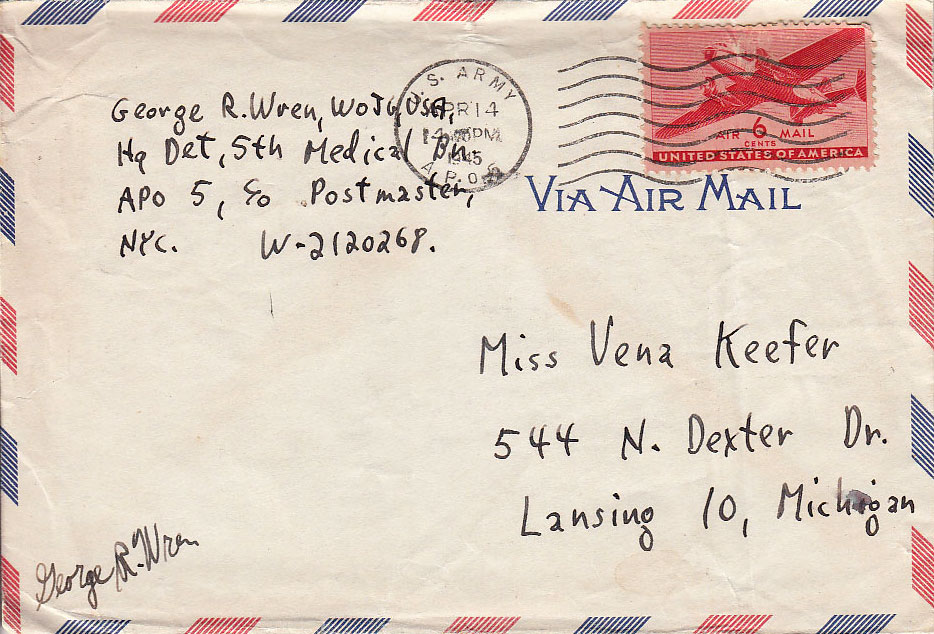 George R. Wren, WOJG, USA,
Hq Det, 5th Medical Bn.
APO 5, c/o Postmaster,
NYC. W-2120268.
U.S. ARMY
APR 14
PM
1945
A.P.O.
AIR 6 MAIL
CENTS
UNITED STATES OF AMERICA
VIA AIR MAIL
Miss Vena Keefer
544 N. Dexter Dr.
Lansing 10, Michigan
George R. Wren